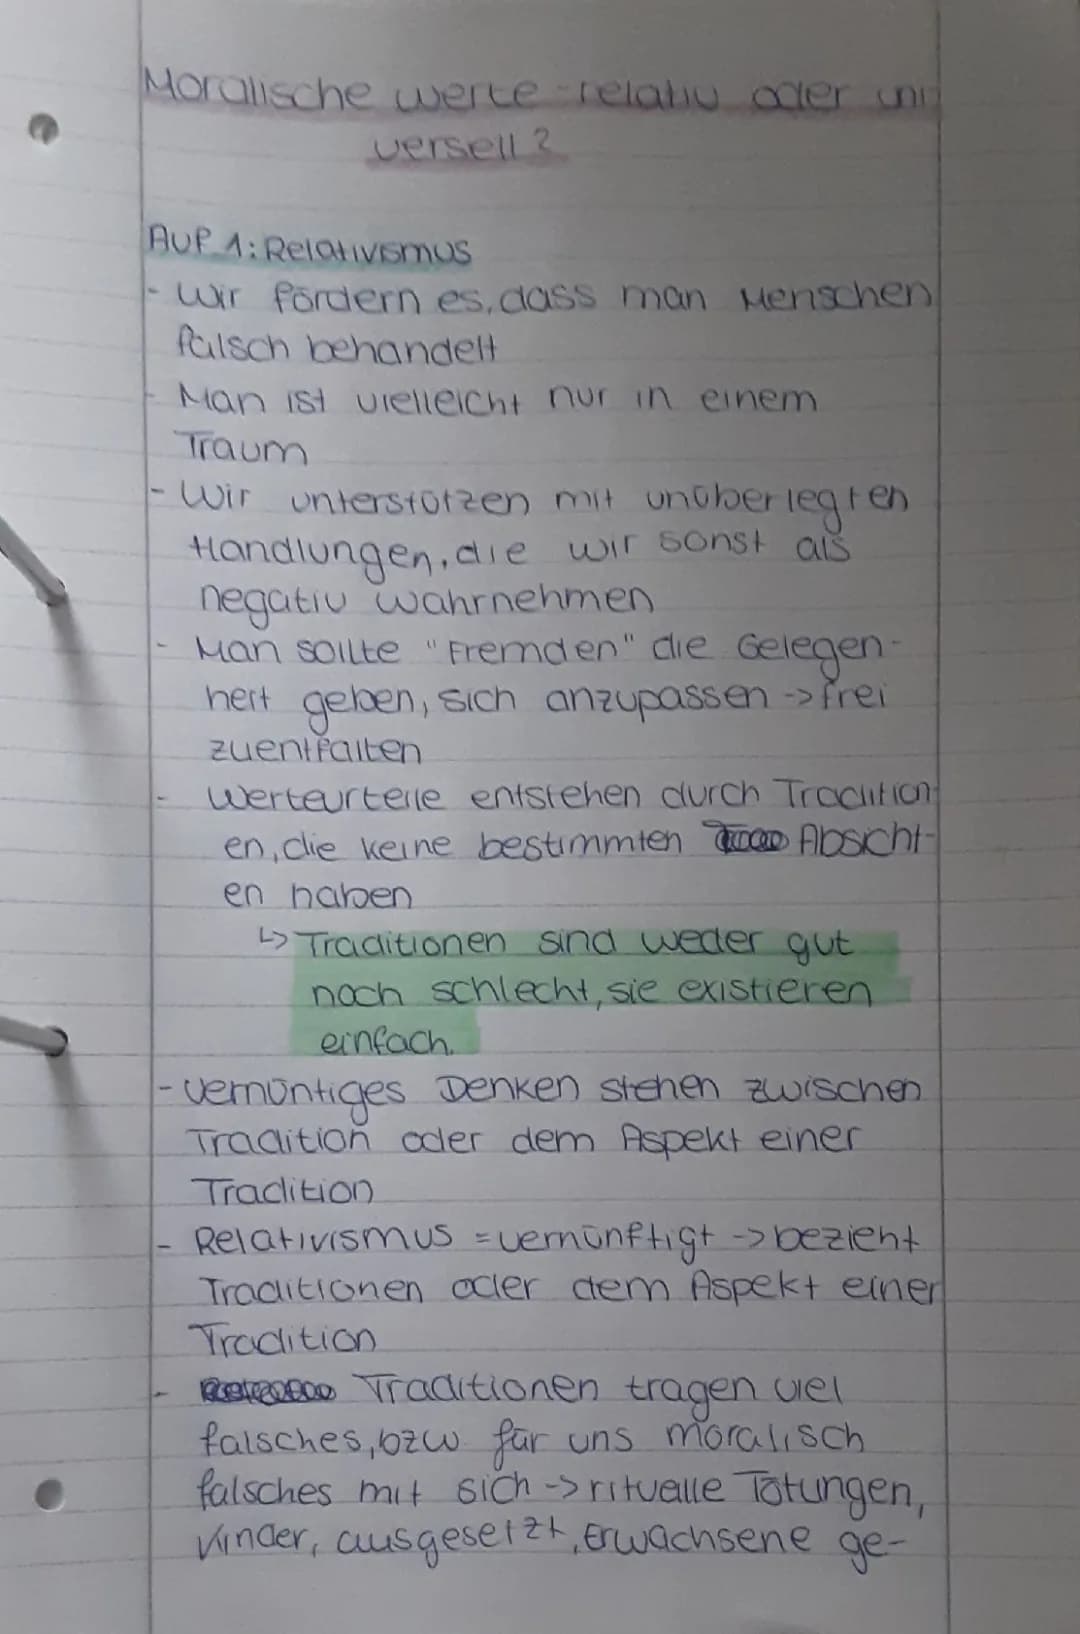 Moralische werte - relativ oder uni
versell?
Auf 1: Relativismus
- Wir fördern es, dass man Menschen
falsch behandelt
- Man ist vielleicht nur in einem
Traum
- Wir unterstützen mit unüberlegten
Handlungen, die wir sonst als
negativ wahrnehmen
- Man sollte "Fremden" die Gelegen-
heit geben, sich anzupassen -> frei
zuentfalten
- Werteurteile entstehen durch Tradition
en, die keine bestimmten Absicht-
en haben
↳ Traditionen sind weder gut
noch schlecht, sie existieren
einfach.
- Vernüntiges Denken stehen zwischen
Tradition oder dem Aspekt einer
Tradition
- Relativismus = vernünftigt -> bezieht
Traditionen oder dem Aspekt einer
Tradition
- Traditionen tragen viel
falsches, bzw. für uns moralisch
falsches mit sich -> rituelle Tötungen,
Kinder, ausgesetzt, Erwachsene ge-